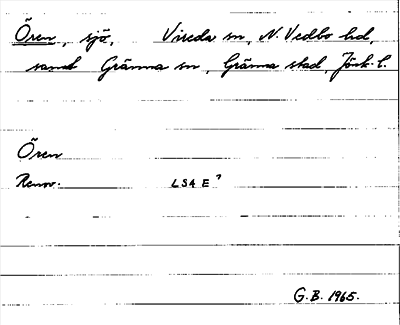 Ören, sjö, Vireda sn, N. Vedbo hd,
samt Gränna sn, Gränna stad, Jönk. l.
Ören
Renov. LSA E⁷
G.B. 1965.